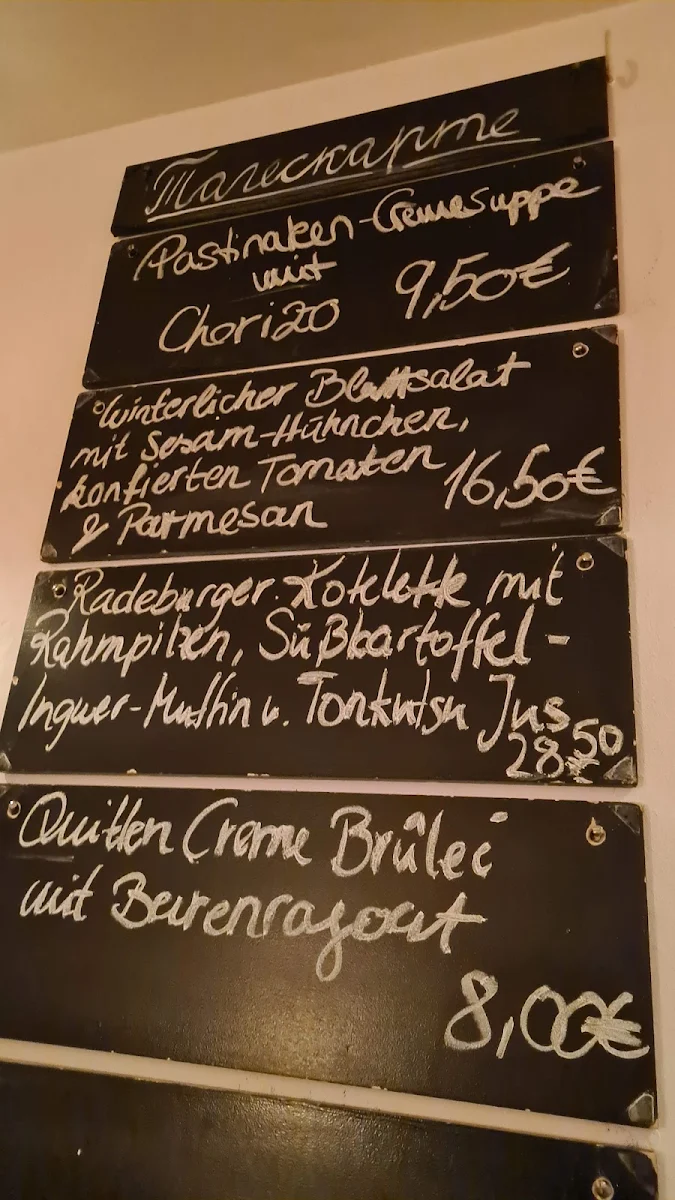 Тагескарте
Pastinaken-Cremesuppe
mit
Chorizo 9,50€
Winterlicher Blattsalat
mit Sesam-Hühnchen,
konfierten Tomaten 16,50€
& Parmesan
Radeburger Kotelette mit
Rahmpilzen, Süßkartoffel-
Ingwer-Muffin u. Tonkutsu Jus
28,50
Quitten Creme Brûleé
mit Beerenragout
8,00€